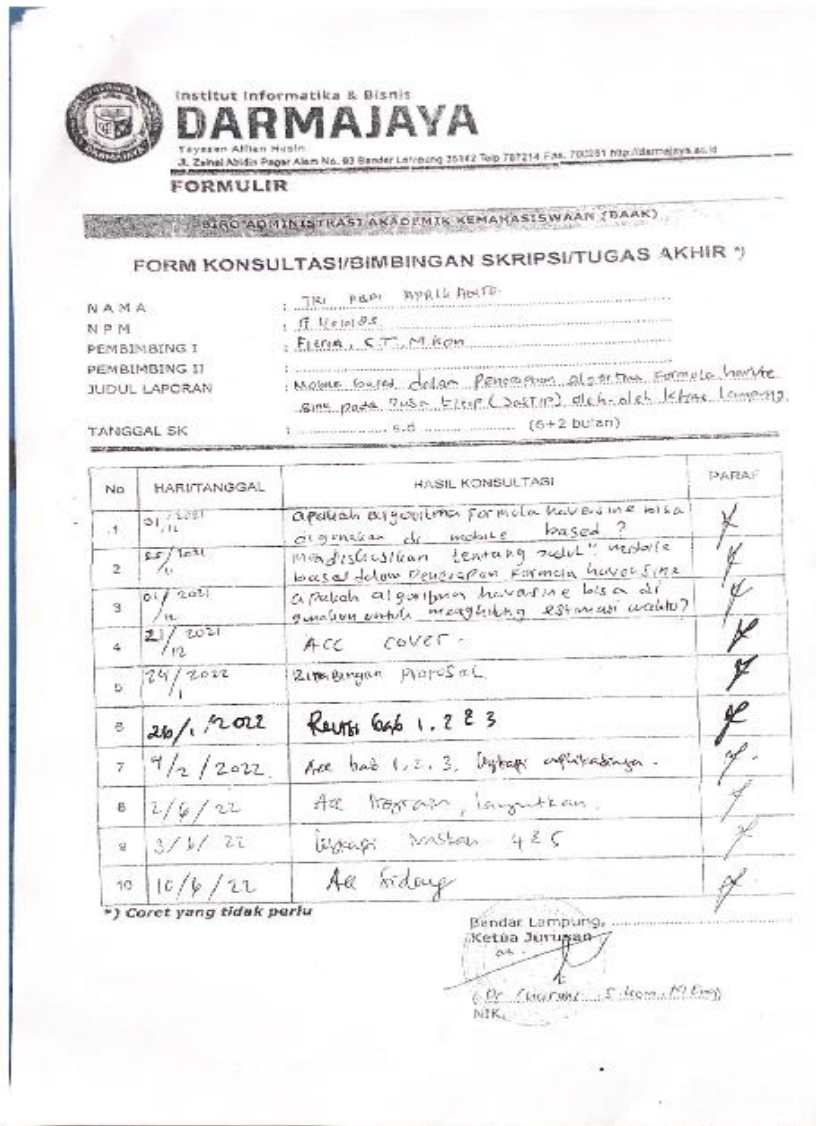 Institut Informatika & Bisnis
DARMAJAYA
Yayasan Alfian Husin
Jl. Zainal Abidin Pagar Alam No. 93 Bandar Lampung 35142 Telp 787214 Fax. 700261 http://darmajaya.ac.id
FORMULIR
BIRO ADMINISTRASI AKADEMIK KEMAHASISWAAN (BAAK)
FORM KONSULTASI/BIMBINGAN SKRIPSI/TUGAS AKHIR *)
NAMA : TRI
NPM :
PEMBIMBING I : Fitria, S.T., M.Kom
PEMBIMBING II :
JUDUL LAPORAN : Mobile based dalam Penerapan algoritma Formula haversine
sine pada Jasa titip (JASTIP) oleh-oleh khas lampung
TANGGAL SK : s.d (6+2 bulan)
No HARI/TANGGAL HASIL KONSULTASI PARAF
1 01/2021/12 apakah algoritma Formula haversine bisa
digunakan di mobile based ?
2 2021/11 Mendiskusikan tentang judul " mobile
based dalam Penerapan Formula haversine
3 01/2021/12 apakah algoritma haversine bisa di
gunakan untuk menghitung estimasi waktu?
4 21/2021/12 ACC cover.
5 24/2022/1 Bimbingan Proposal.
6 26/1/2022 Revisi bab 1, 2 & 3
7 4/2/2022 Acc bab 1, 2, 3, lengkapi aplikasinya.
8 2/6/22 Acc Program, lanjutkan.
9 3/6/22 lengkapi 4 & 5
10 10/6/22 Acc Sidang
*) Coret yang tidak perlu
Bandar Lampung,
Ketua Jurusan
an.
(Dr. S.Kom., M.Eng)
NIK.